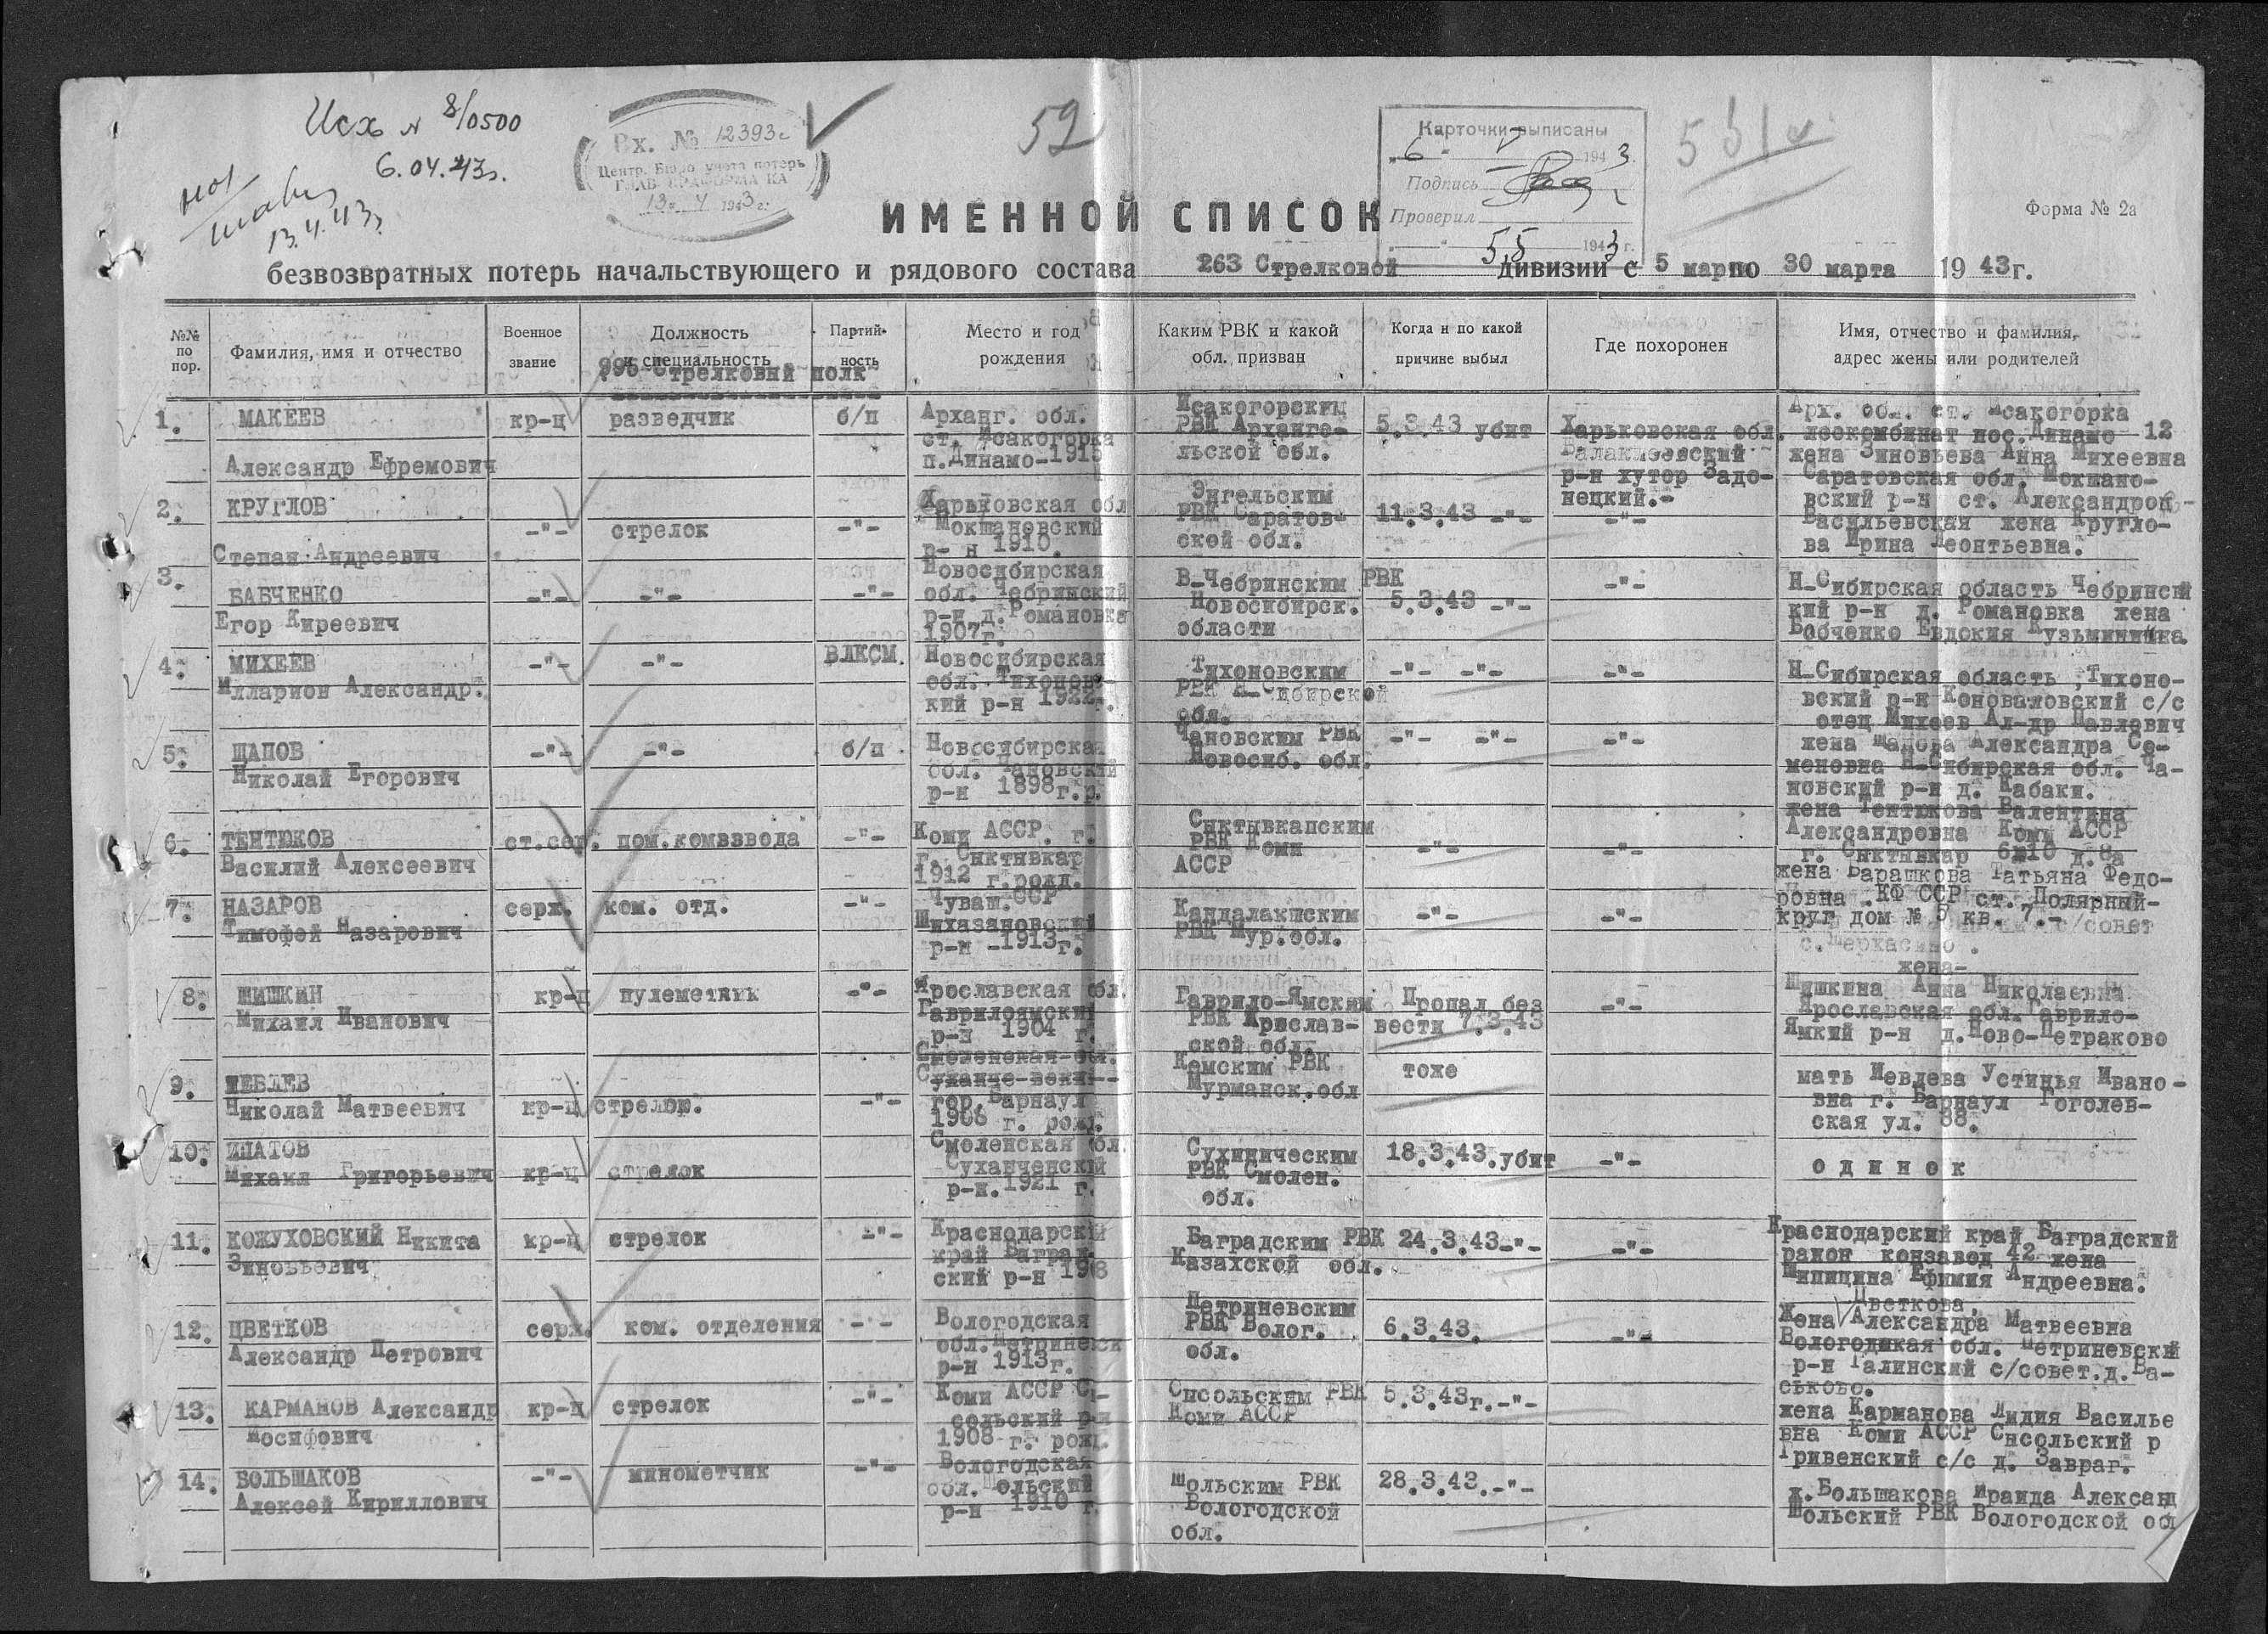 Исх N 8/0500
6.04.43г.
13.4.43г.
Вх. № 12393с
Центр. Бюро учета потерь
13" 4 1943 г.
52
Карточки выписаны
„6" V 1943.
Подпись
Проверил
55 1943 г.
531
Форма № 2а
ИМЕННОЙ СПИСОК
безвозвратных потерь начальствующего и рядового состава 263 Стрелковой дивизии с 5 мар по 30 марта 1943г.
№№ по пор.
Фамилия, имя и отчество
Военное звание
Должность и специальность
Партийность
Место и год рождения
Каким РВК и какой обл. призван
Когда и по какой причине выбыл
Где похоронен
Имя, отчество и фамилия, адрес жены или родителей
995 Стрелковый полк
1. МАКЕЕВ
Александр Ефремович
кр-ц
разведчик
б/п
Арханг. обл.
ст. Исакогорка
п.Динамо-1915
Исакогорским
РВК Арханге-
льской обл.
5.3.43 убит
Харьковская обл.
Балаклеевский
р-н хутор Задо-
нецкий.-
Арх. обл. ст. Исакогорка
лескомбинат пос.Динамо 12
жена Зиновьева Анна Михеевна
2. КРУГЛОВ
Степан Андреевич
-"-
стрелок
-"-
Харьковская обл
Мокшановский
р- н 1910.
Энгельским
РВК Саратов-
ской обл.
11.3.43 -"-
-"-
Саратовская обл. Мокшано-
вский р-н ст. Александров-
Васильевская жена Кругло-
ва Ирина Леонтьевна.
3. БАБЧЕНКО
Егор Киреевич
-"-
-"-
-"-
Новосибирская
обл. Чебринский
р-н д.Романовка
1907г.
В-Чебринским РВК
Новосибирск.
области
5.3.43 -"-
-"-
Н-Сибирская область Чебринсй
кий р-н д. Романовка жена
Бабченко Евдокия Кузьминична
4. МИХЕЕВ
Илларион Александр.
-"-
-"-
ВЛКСМ.
Новосибирская
обл. Тихонов-
кий р-н 1922г.
Тихоновским
РВК Н-Сибирской
обл.
-"- -"-
-"-
Н-Сибирская область ,Тихоно-
вский р-н Коноваловский с/с
отец Михеев Ал-др Павлович
5. ШАПОВ
Николай Егорович
-"-
-"-
б/п
Новосибирская
обл. Чановский
р-н 1898г.р.
Чановским РВК
Новосиб. обл.
-"- -"-
-"-
жена Шапова Александра Се-
меновна Н-Сибирская обл. Ча-
новский р-н д. Кабаки.
6. ТЕНТЮКОВ
Василий Алексеевич
ст.сер.
пом.комвзвода
-"-
Коми АССР. г.
г. Сыктывкар
1912 г.рожд.
Сыктывкапским
РВК Коми
АССР
-"-
-"-
жена Тентюкова Валентина
Александровна Коми АССР
г. Сыктывкар д.8а
7. НАЗАРОВ
Тимофей Назарович
серж.
ком. отд.
-"-
Чуваш.ССР
Шихазановский
р-н -1913г.
Кандалакшским
РВК Мур.обл.
-"-
-"-
жена Барашкова Татьяна Федо-
ровна .КФ ССР ст. Полярный-
круг дом № 5 кв. 7.- с/совет
с.Шеркасино .
8. ШИШКИН
Михаил Иванович
кр-ц
пулеметчик
-"-
Ярославская обл.
Гаврилоямский
р-н 1904 г.
Гаврило-Ямским
РВК Ярослав-
ской обл.
Пропал без
вести 7.3.43
-"-
жена-
Шишкина Анна Николаевна
Ярославская обл.Гаврило-
Ямкий р-н д.Ново-Петраково
9. ИЕВЛЕВ
Николай Матвеевич
кр-ц
стрелок.
-"-
Смоленская обл.
гор.Барнаул
1908 г. рожд.
Кемским РВК
Мурманск.обл
тоже
мать Иевлева Устинья Ивано-
вна г. Барнаул Гоголев-
ская ул. 88.
10. ИПАТОВ
Михаил Григорьевич
кр-ц
стрелок
Смоленская обл.
Суханченский
р-н.1921 г.
Сухиническим
РВК Смолен.
обл.
18.3.43.убит
-"-
о д и н о к
11. КОЖУХОВСКИЙ Никита
Зиновьевич
кр-ц
стрелок
-"-
Краснодарский
край Баград.
ский р-н 198
Баградским РВК
Казахской обл.
24.3.43-"-
-"-
Краснодарский край Баградский
район конзавод 42 жена
Шипицина Ефимия Андреевна.
12. ЦВЕТКОВ
Александр Петрович
серж.
ком. отделения
- -
Вологодская
обл.Петриневск
р-н 1913г.
Петриневским
РВК Волог.
обл.
6.3.43.
-"-
Цветкова
Жена Александра Матвеевна
Вологодцкая обл. Петриневский
р-н Галинский с/совет.д.Ва-
ськово.
13. КАРМАНОВ Александр
Иосифович
кр-ц
стрелок
-"-
Коми АССР Сы-
сольский р-н
1908 г. рожд.
Сысольским РВК
Коми АССР
5.3.43г.-"-
жена Карманова Лидия Василье
вна Коми АССР Сысольский р
Гривенский с/с д. Завраг.
14. БОЛЬШАКОВ
Алексей Кириллович
-"-
минометчик
-"-
Вологодская
обл. Шольский
р-н 1910 г.
Шольским РВК
Вологодской
обл.
28.3.43.-"-
ж.Большакова Ираида Александ
Шольский РВК Вологодской обл